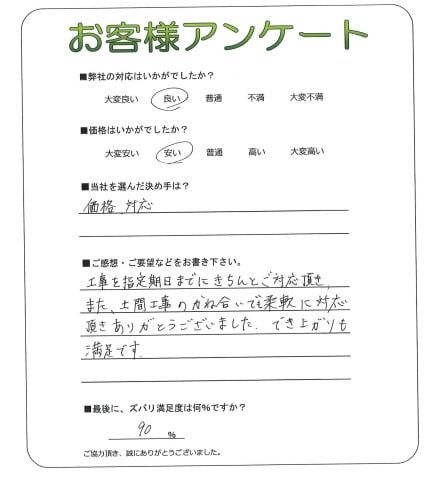 お客様アンケート
■弊社の対応はいかがでしたか？
大変良い 良い 普通 不満 大変不満
■価格はいかがでしたか？
大変安い 安い 普通 高い 大変高い
■当社を選んだ決め手は？
価格、対応
■ご感想・ご要望などをお書き下さい。
工事を指定期日までにきちんとご対応頂き、
また、土間工事のかね合いでも柔軟に対応
頂きありがとうございました。でき上がりも
満足です。
■最後に、ズバリ満足度は何%ですか？
90 %
ご協力頂き、誠にありがとうございました。